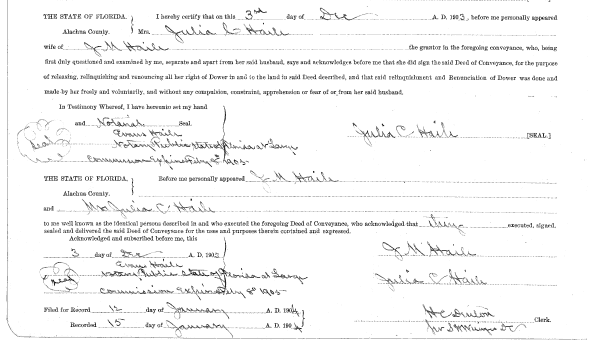 THE STATE OF FLORIDA. } I hereby certify that on this 3rd day of Dec A. D. 1903, before me personally appeared
Alachua County. } Mrs. Julia C Haile
wife of J M Haile the grantor in the foregoing conveyance, who, being
first duly questioned and examined by me, separate and apart from her said husband, says and acknowledges before me that she did sign the said Deed of Conveyance, for the purpose
of releasing, relinquishing and renouncing all her right of Dower in and to the land in said Deed described, and that said relinquishment and Renunciation of Dower was done and
made by her freely and voluntarily, and without any compulsion, constraint, apprehension or fear of or from her said husband.
In Testimony Whereof, I have hereunto set my hand
and Notarial Seal.
Evans Haile
Seal Notary Public State of Florida at Large
Julia C Haile [SEAL.]
Commission Expires Feby 8th 1905
THE STATE OF FLORIDA. } Before me personally appeared J M Haile
Alachua County. }
and Mrs Julia C Haile
to me well known as the identical persons described in and who executed the foregoing Deed of Conveyance, who acknowledged that they executed, signed,
sealed and delivered the said Deed of Conveyance for the uses and purposes therein contained and expressed.
Acknowledged and subscribed before me, this
3 day of Dec A. D. 1903
J M Haile
Evans Haile
Seal Notary Public State of Florida at Large
Julia C Haile
Commission Expires Feby 8th 1905
Filed for Record 12 day of January A. D. 1904
H C Denton Clerk.
Recorded 15 day of January A. D. 1904